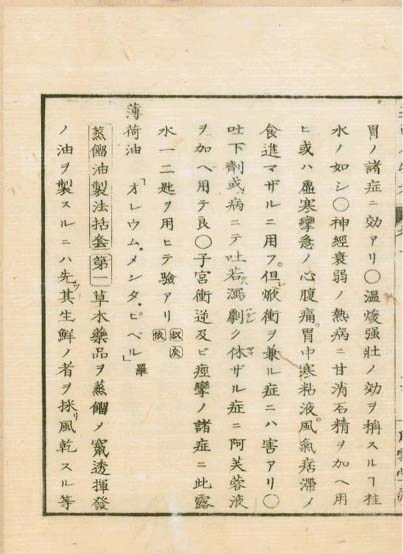 胃ノ諸症ニ効アリ〇温煖强壮ノ効ヲ稱スルヿ桂
水ノ如シ〇神經衰弱ノ熱病ニ甘消石精ヲ加ヘ用
ヒ或ハ虚寒攣急ノ心腹痛。胃中寒粘液。風氣病滞ノ
食進マザルニ用フ。但シ焮衝ヲ兼ル症ニハ害アリ〇
吐下劑或病ニテ吐若瀉劇ク休ザル症ニ阿芙蓉液
ヲ加ヘ用テ良〇子宮衝逆及ビ痙攣ノ諸症ニ此露
水一二匙ヲ用ヒテ驗アリ
薄荷油 「オレウム・メンタ・ピペル」羅
蒸餾油製法括套 第一 草木藥品ヲ蒸餾ノ竄透揮發
ノ油ヲ製スルニハ先ツ其生鮮ノ者ヲ採リ風乾スル等